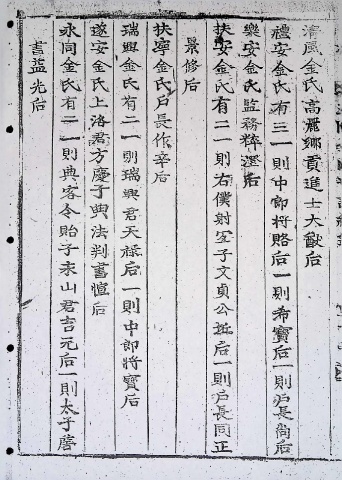 清風金氏高麗鄉貢進士大猷后
禮安金氏有三一則中郎將賂后一則希寶后一則戶長尙后
樂安金氏監務粹選后
扶安金氏有二一則右僕射子文貞公坵后一則戶長同正
景修后
扶寧金氏戶長作辛后
瑞興金氏有二一則瑞興君天祿后一則中郎將寶后
遂安金氏上洛君方慶子典法判書愃后
永同金氏有二一則典客令貽子永山君吉元后一則太子詹
書益光后